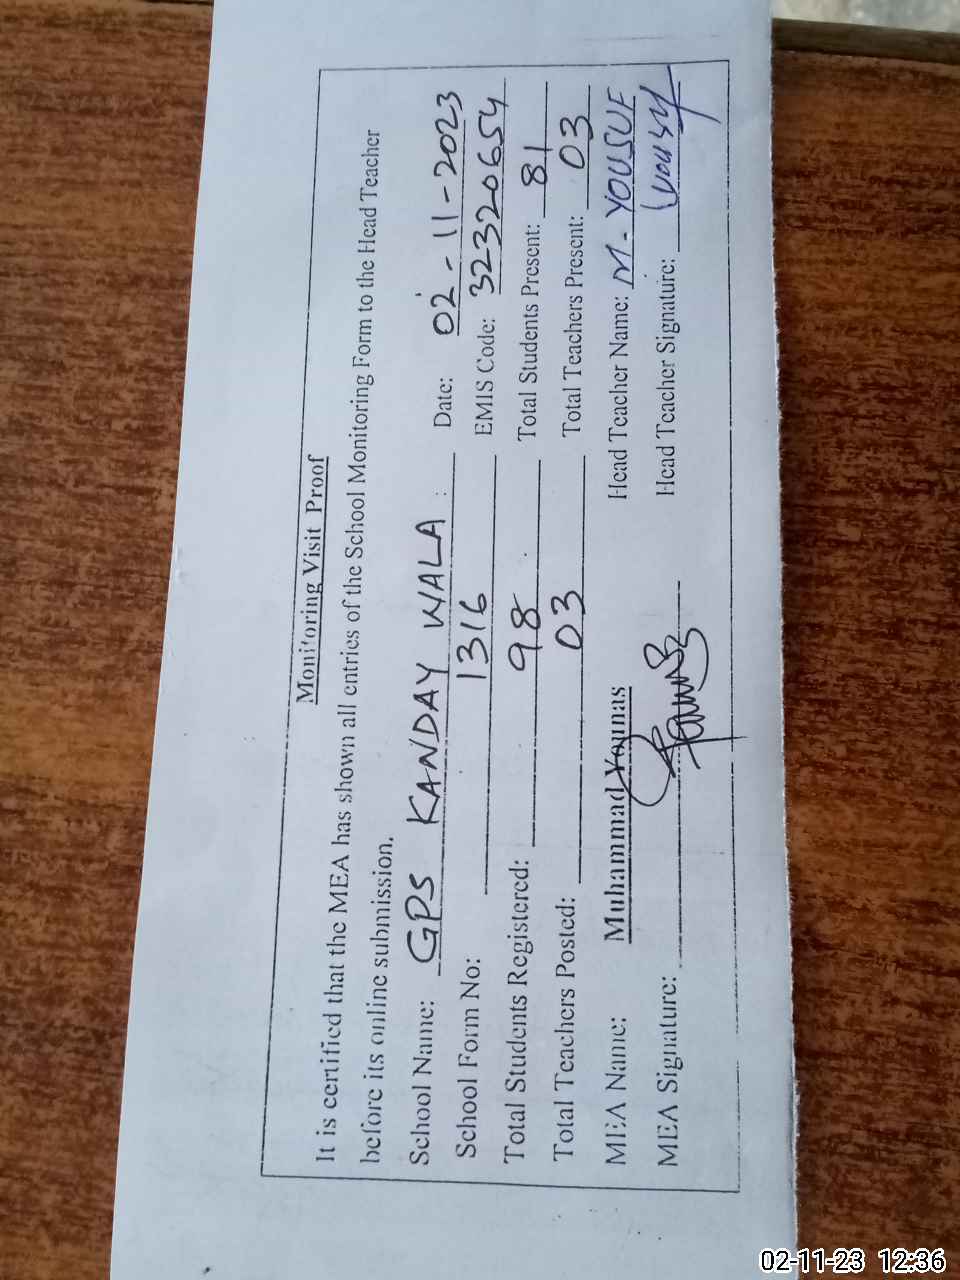 Monitoring Visit Proof
It is certified that the MEA has shown all entries of the School Monitoring Form to the Head Teacher
before its online submission.
School Name: GPS KANDAY WALA Date: 02-11-2023
School Form No: 1316 EMIS Code: 32320654
Total Students Registered: 98 Total Students Present: 81
Total Teachers Posted: 03 Total Teachers Present: 03
MEA Name: Muhammad Younas Head Teacher Name: M. YOUSUF
MEA Signature: Head Teacher Signature:
02-11-23 12:36